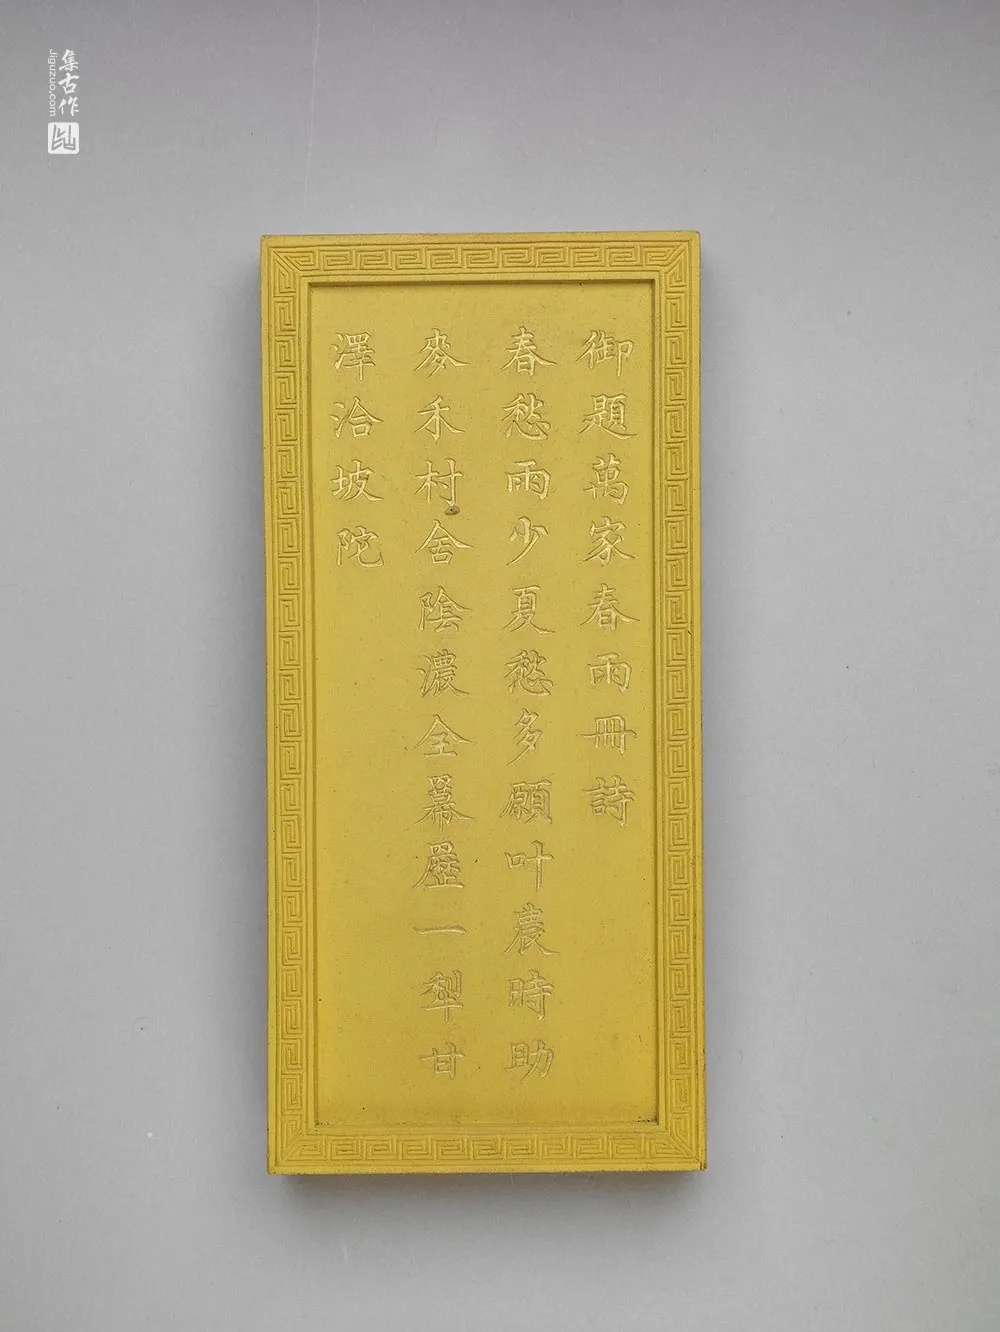 御題萬家春雨冊詩
春愁雨少夏愁多願叶農時助
麥禾村舍陰濃全羃歷一犁甘
澤洽坡陀
集古作
Jiguzuo.com